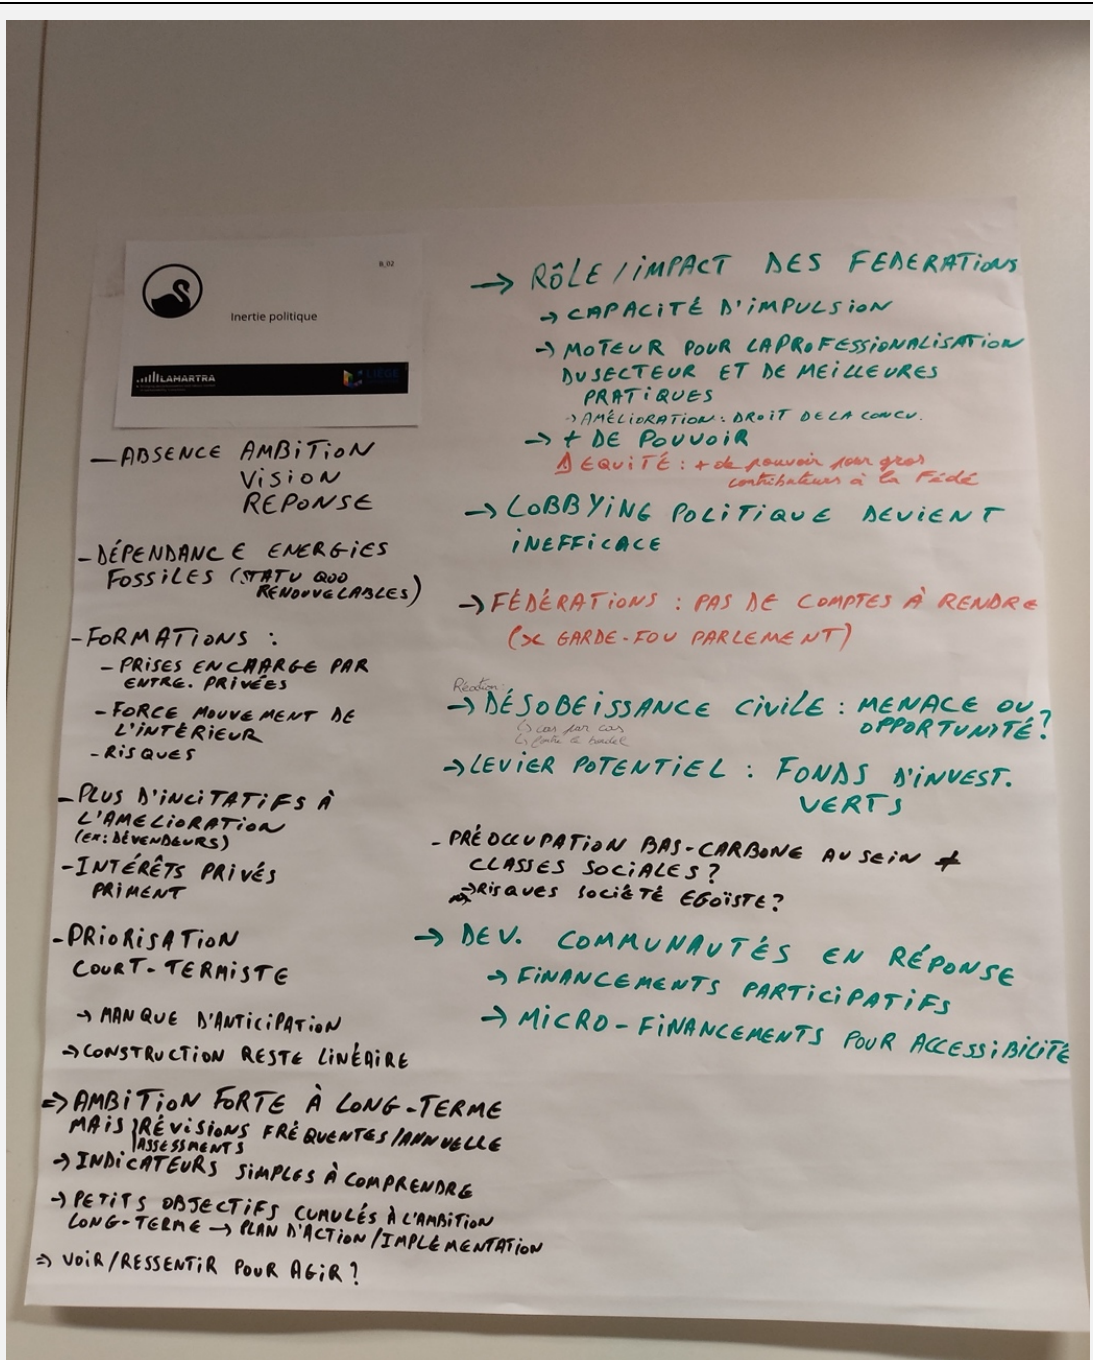 B_02
Inertie politique
LAMARTRA
LIÈGE
— ABSENCE AMBITION
VISION
REPONSE
- DÉPENDANCE ENERGIES
FOSSILES (STATU QUO
RENOUVELABLES)
- FORMATIONS :
- PRISES EN CHARGE PAR
ENTRE. PRIVÉES
- FORCE MOUVEMENT DE
L'INTÉRIEUR
- RISQUES
- PLUS D'INCITATIFS À
L'AMELIORATION
(EX: DÉVENDEURS)
- INTÉRÊTS PRIVÉS
PRIMENT
- PRIORISATION
COURT-TERMISTE
→ MANQUE D'ANTICIPATION
→ CONSTRUCTION RESTE LINÉAIRE
⇒ AMBITION FORTE À LONG-TERME
MAIS RÉVISIONS FRÉQUENTES/ANNUELLE
ASSESSMENTS
→ INDICATEURS SIMPLES À COMPRENDRE
→ PETITS OBJECTIFS CUMULÉS À L'AMBITION
LONG-TERME → PLAN D'ACTION/IMPLEMENTATION
⇒ VOIR/RESSENTIR POUR AGIR ?
→ RÔLE / IMPACT DES FEDERATIONS
→ CAPACITÉ D'IMPULSION
→ MOTEUR POUR LA PROFESSIONALISATION
DU SECTEUR ET DE MEILLEURES
PRATIQUES
→ AMÉLIORATION : DROIT DE LA CONCU.
→ + DE POUVOIR
⚠ EQUITÉ : + de pouvoir pour gros
contributeurs à la Fédé
→ LOBBYING POLITIQUE DEVIENT
INEFFICACE
→ FÉDÉRATIONS : PAS DE COMPTES À RENDRE
(>< GARDE-FOU PARLEMENT)
Réaction:
→ DÉSOBEISSANCE CIVILE : MENACE OU
OPPORTUNITÉ ?
↳ cas par cas
→ LEVIER POTENTIEL : FONDS D'INVEST.
VERTS
- PRÉOCCUPATION BAS-CARBONE AU SEIN ≠
CLASSES SOCIALES ?
⇒ RISQUES SOCIÉTÉ EGOÏSTE ?
→ DEV. COMMUNAUTÉS EN RÉPONSE
→ FINANCEMENTS PARTICIPATIFS
→ MICRO-FINANCEMENTS POUR ACCESSIBILITÉ